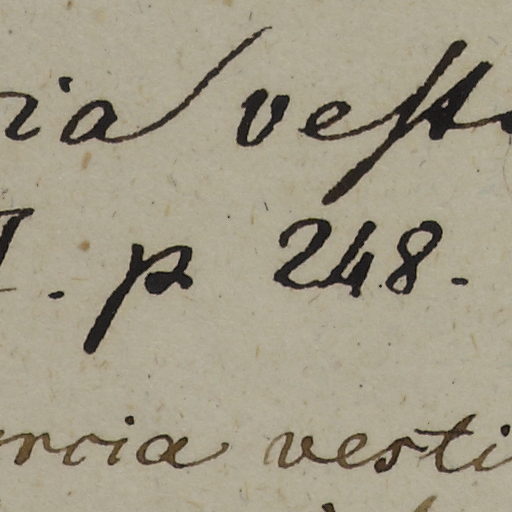 ia vest
I. p 248.
rcia vesti